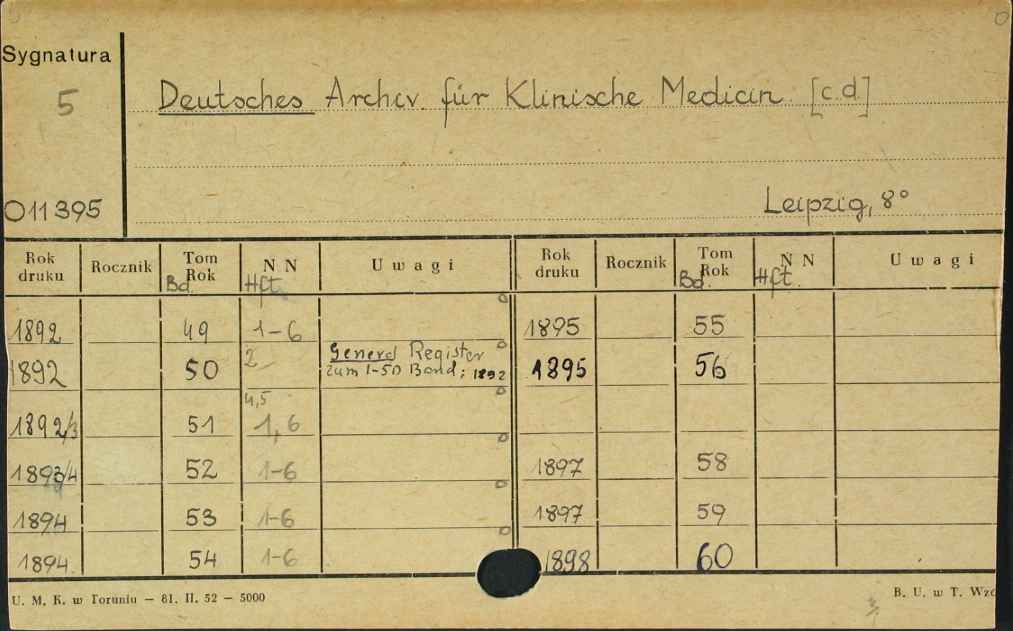 Sygnatura
5
Deutsches Archiv. für Klinische Medicin. [c.d]
011395
Leipzig, 8°
Rok druku Rocznik Tom Rok Bd. NN Hft. Uwagi Rok druku Rocznik Tom Rok Bd. NN Hft. Uwagi
1892 49 1-6 1895 55
1892 50 2 General Register zum 1-50 Band; 1892 1895 56
4,5
1892/3 51 1, 6
1893/4 52 1-6 1897 58
1894 53 1-6 1897 59
1894. 54 1-6 1898 60
U. M. K. w Toruniu — 81. II. 52 — 5000
B. U. w T. Wzo